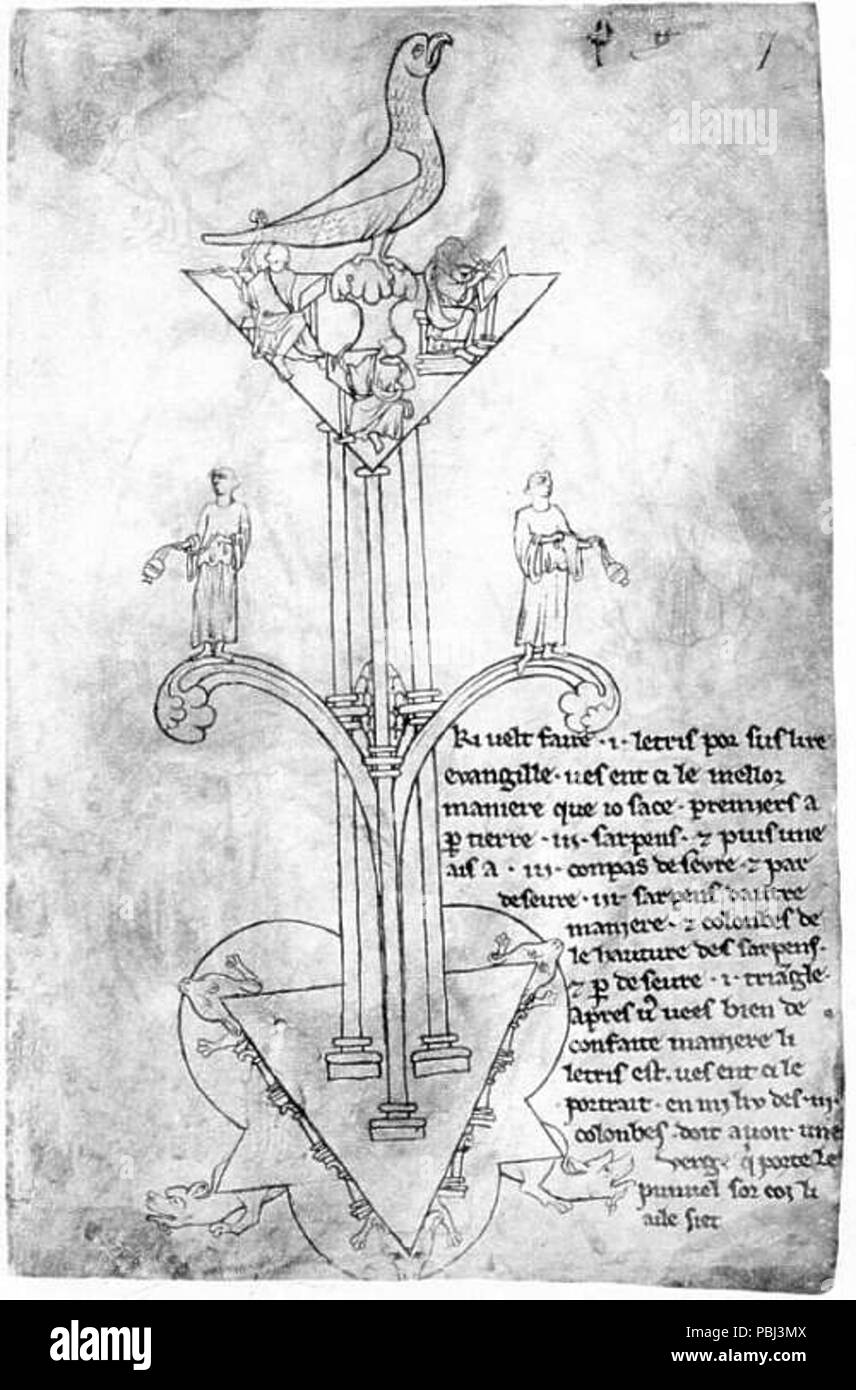 7
alamy
Ki velt faire · i · letris por sus lire
evangille · ves ent ci le mellor
maniere que io sace · premiers a
p tierre · iij · sarpens · ⁊ puis une
ais a · iij · conpas deseure ⁊ par
deseure · iij · sarpens dautre
maniere · ⁊ colonbes de
le hauture des sarpens ·
⁊ p deseure · i · triangle ·
Apres vos vees bien de
confaite maniere li
letris est. ves ent ci le
portrait · en mi liv des · iij ·
colonbes · doit avoir une
verge q porte le
pumel sor coi li
aile siet
alamy
Image ID: PBJ3MX
www.alamy.com